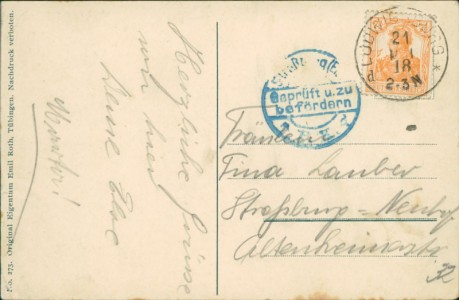 No. 273. Original Eigentum Emil Roth, Tübingen. Nachdruck verboten.
Herzliche Grüsse
von hier
Deine Else
LUDWIGSBURG *
21
18
2-3N
Straßburg (Els.)
Geprüft u. zu
befördern
Fräulein
Tina Lauber
Straßburg - Neuhof
Altenheimerstr.
32